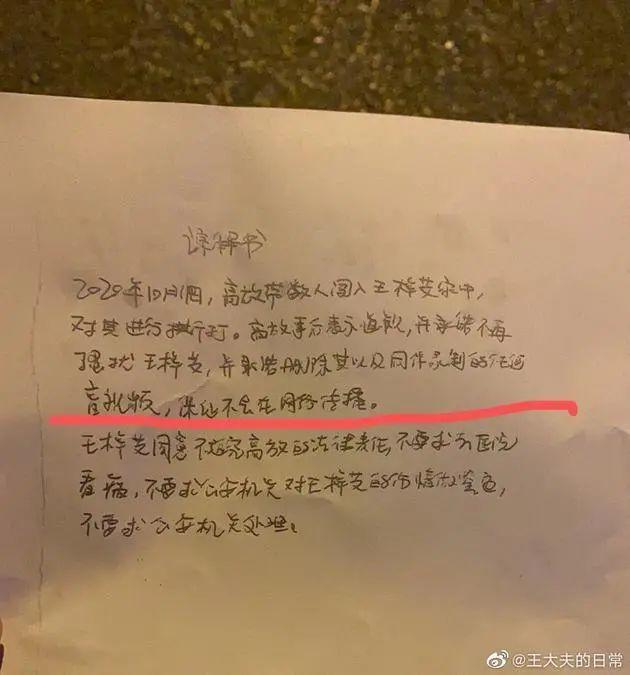 谅解书
2020年10月1日，高放带数人闯入王梓芠家中，
对其进行拳打。高放事后表示道歉，并承诺不再
骚扰王梓芠，并承诺删除其以及同伴录制的任何
音视频，保证不会在网络传播。
王梓芠同意不追究高放的法律责任，不要求去医院
看病，不要求公安机关对王梓芠的伤情做鉴定，
不要求公安机关处理。
@王大夫的日常